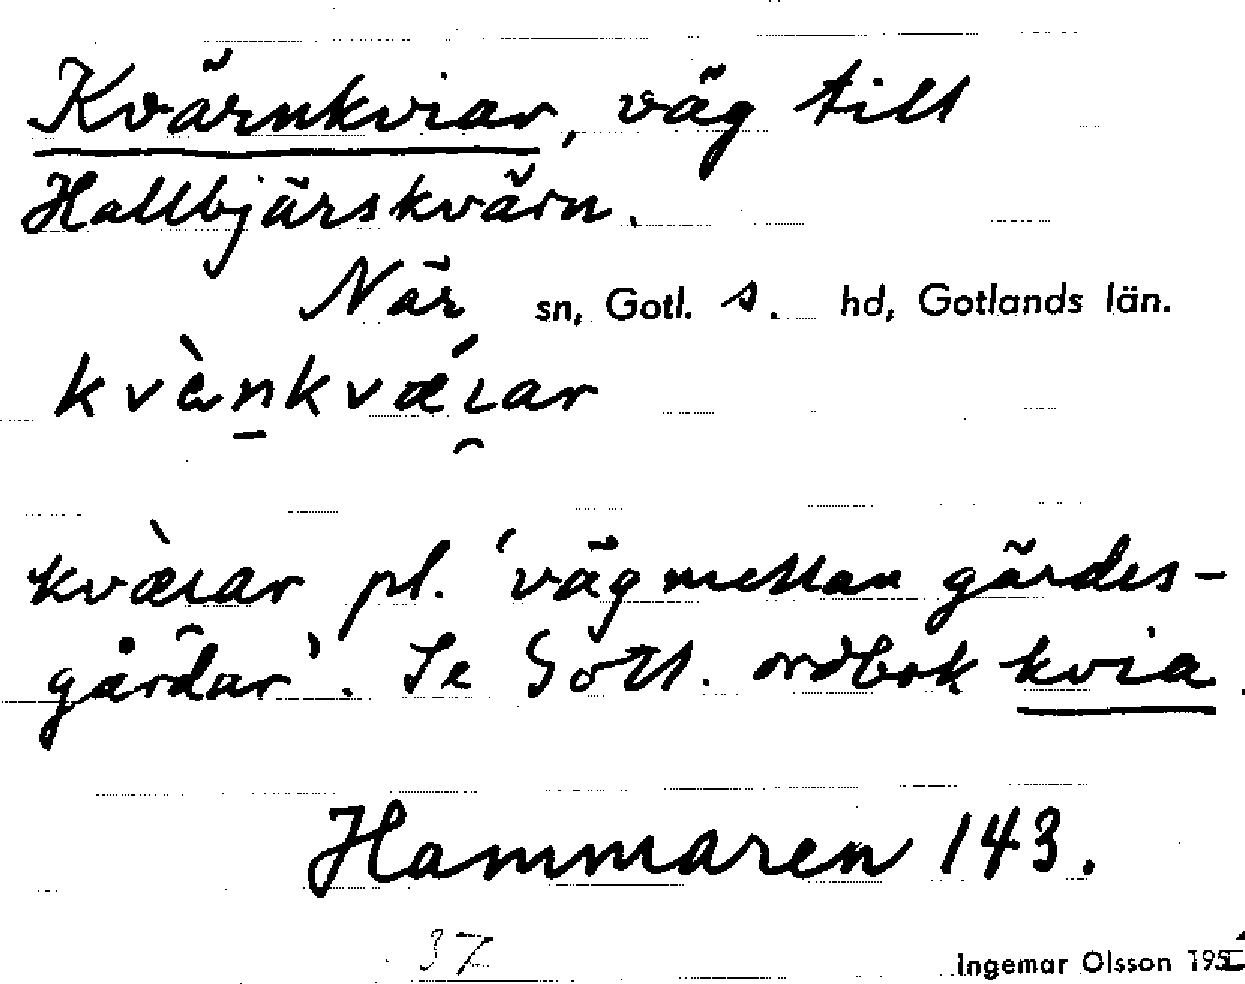 Kvärnkviar, väg till
Hallbjärskvärn.
När sn, Gotl. s. hd, Gotlands län.
kvæ̀nkvǽıar
kvæ̀ıar pl. 'väg mellan gärdes-
gårdar'. Se Gotl. ordbok kvia.
Hammaren 143.
37
Ingemar Olsson